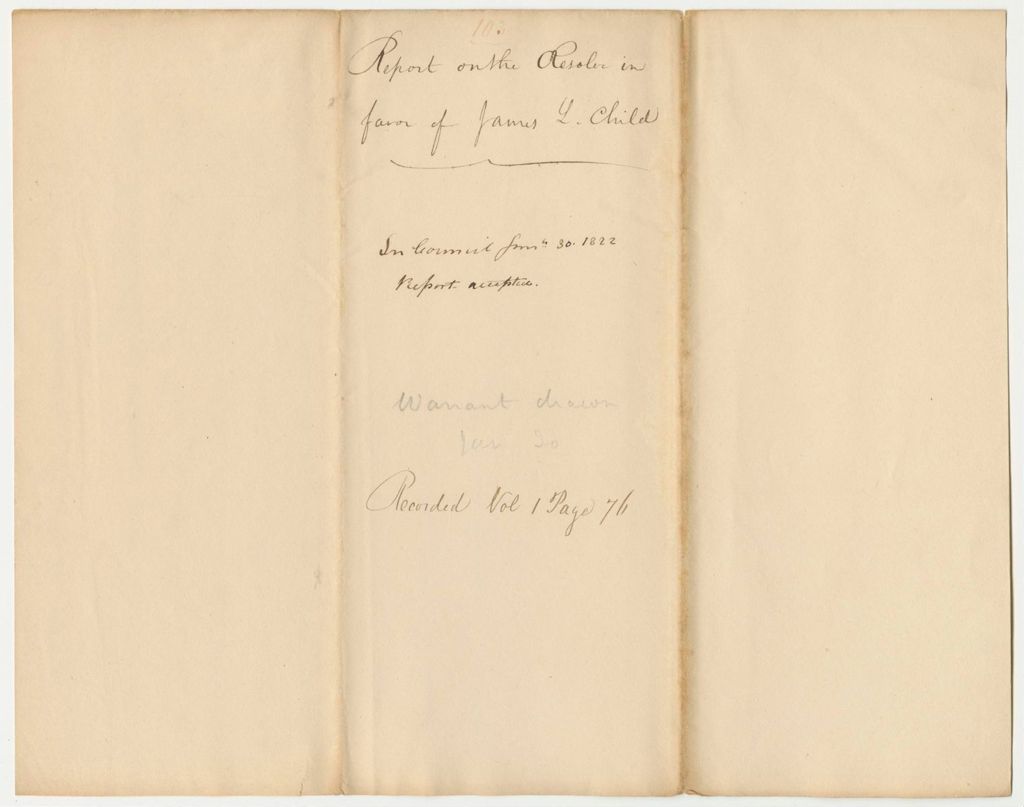 103
Report on the Resolve in
favor of James L. Child
In Council Jany 30. 1822
Report accepted.
Warrant drawn
Jan 30
Recorded Vol 1 Page 76